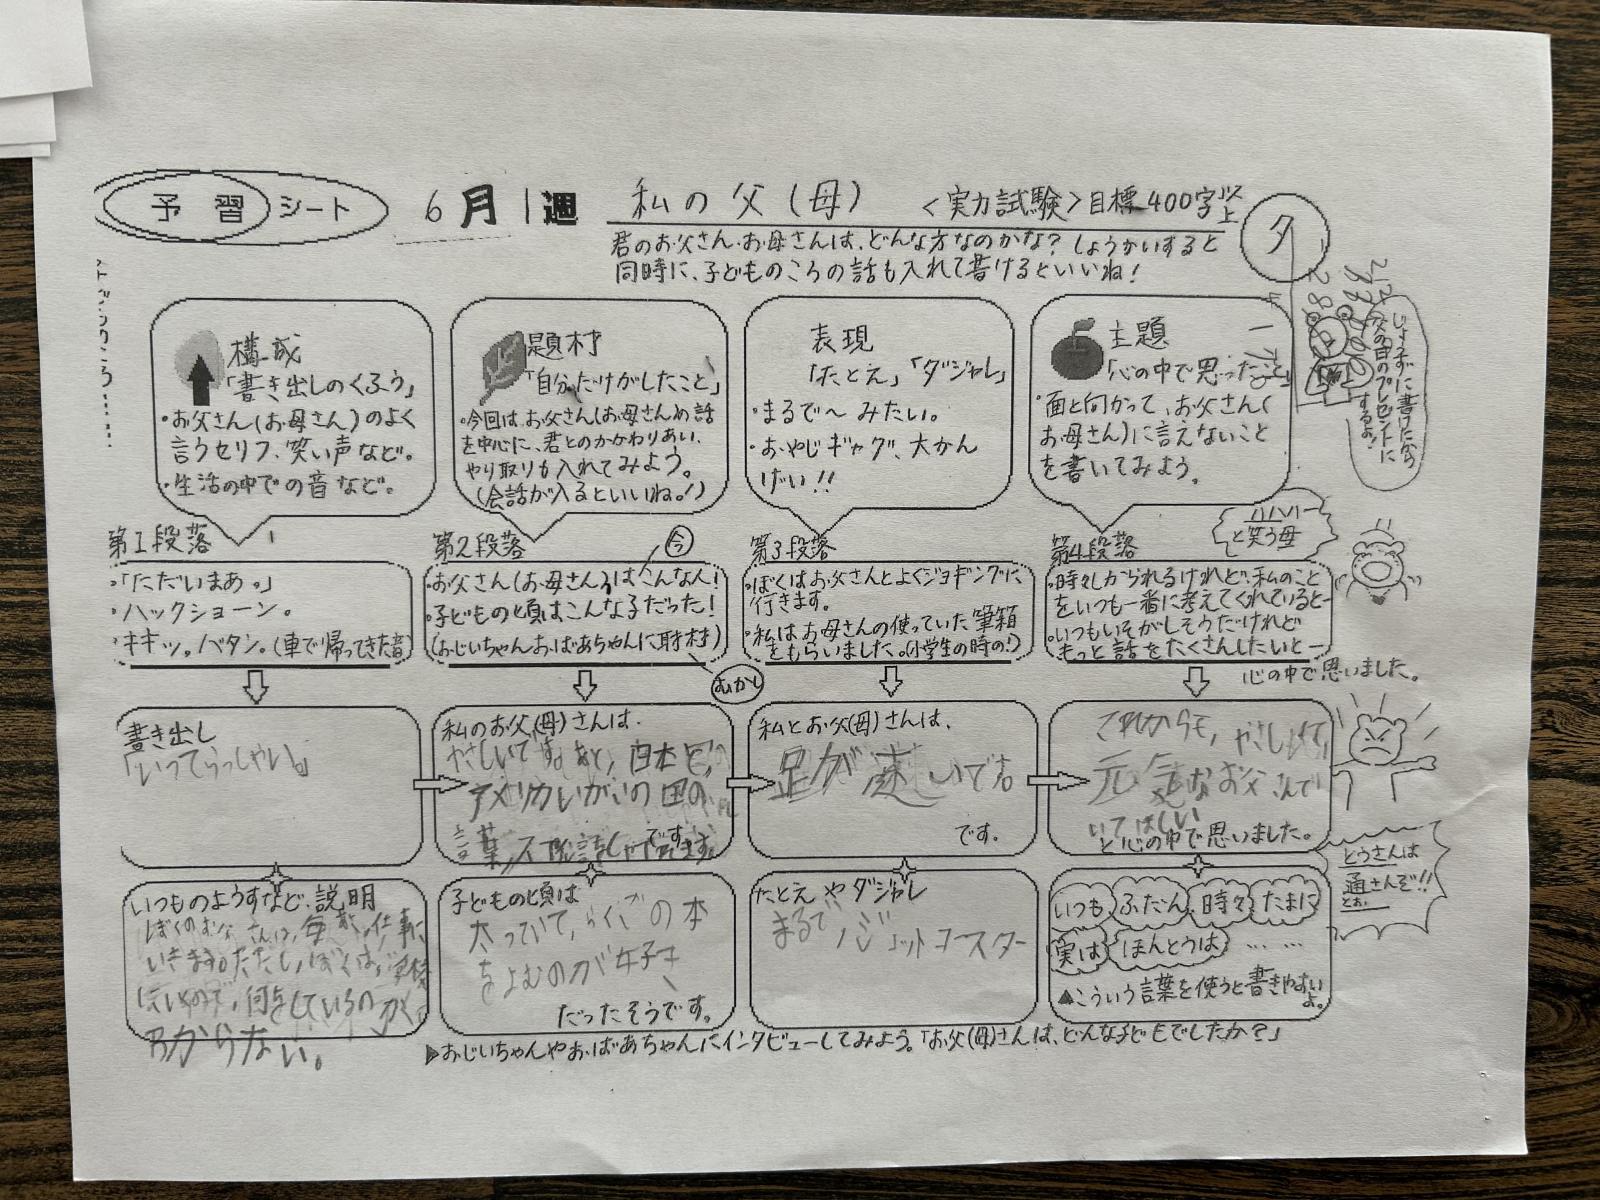 予習シート
6月1週
私の父(母)
<実力試験>目標400字以上
君のお父さん・お母さんは、どんな方なのかな?しょうかいすると
同時に、子どものころの話も入れて書けるといいね!
構成
「書き出しのくふう」
・お父さん(お母さん)のよく
言うセリフ、笑い声など。
・生活の中での音など。
題材
「自分だけがしたこと」
・今回はお父さん(お母さん)の話
を中心に、君とのかかわりあい、
やり取りも入れてみよう。
(会話が入るといいね!)
表現
「たとえ」「ダジャレ」
・まるで〜みたい。
・おやじギャグ、大かん
げい!!
主題
「心の中で思ったこと」
・面と向かって、お父さん(
お母さん)に言えないこと
を書いてみよう。
じょうずに書けたら
父の日のプレゼントに
するお!
第1段落
・「ただいまあ。」
・ハックショーン。
・キキッ。バタン。(車で帰ってきた音)
第2段落
今
・お父さん(お母さん)はこんな人!
・子どもの頃はこんな子だった!
(おじいちゃんおばあちゃんに取材)
むかし
第3段落
・ぼくはお父さんとよくジョギングに
行きます。
・私はお母さんの使っていた筆箱
をもらいました。(小学生の時の!)
第4段落
・時々しかられるけれど、私のこと
をいつも一番に考えてくれていると―
・いつもいそがしそうだけれど
もっと話をたくさんしたいと―
心の中で思いました。
ハハハハ
と笑う母
書き出し
「いってらっしゃい」
私のお父(母)さんは、
やさしいです。あと、日本と、
アメリカいがいの国の
言葉
です。
私とお父(母)さんは、
足が速いです
です。
これからも、やさしくて、
元気なお父さんで
いてほしい
と心の中で思いました。
いつものようすなど、説明
仕事に
いきます。ただし、ぼくは、学校
何をしているのか
わからない。
子どもの頃は
太っていて、らくごの本
をよむのが好き
だったそうです。
たとえやダジャレ
まるでジェットコースター
いつも ふだん 時々 たまに
実は ほんとうは ……
▲こういう言葉を使うと書きやすいよ。
とうさんは
通さんぞ!!
とお。
▶おじいちゃんやおばあちゃんにインタビューしてみよう。「お父(母)さんは、どんな子どもでしたか?」